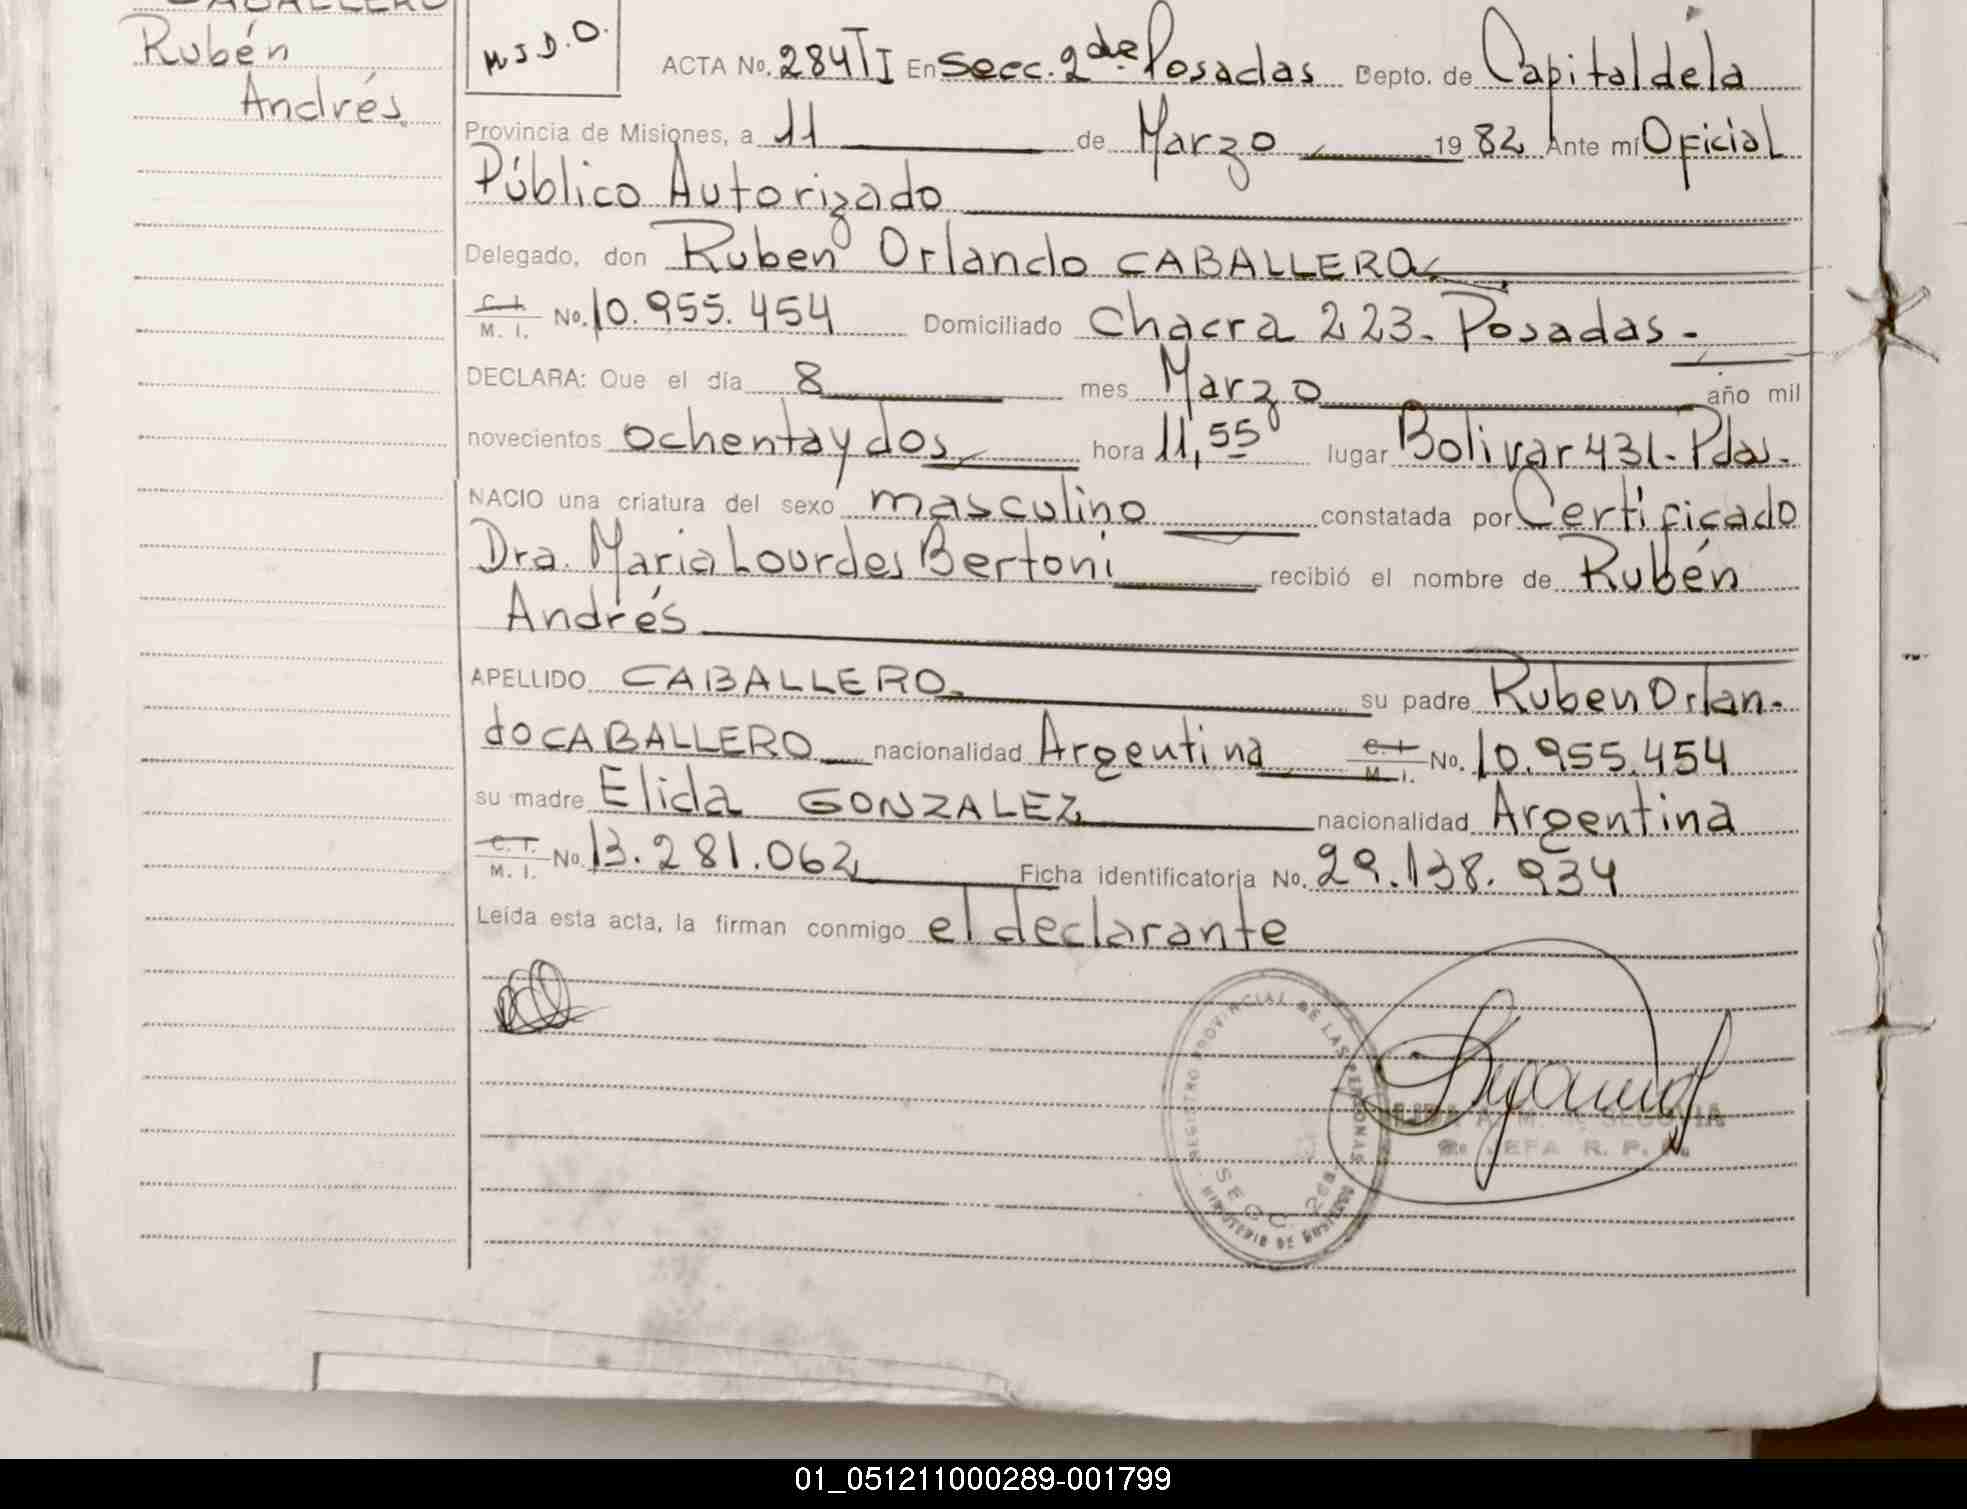 CABALLERO
Rubén
Andrés.
M I D.O.
ACTA No. 284 TI En Secc. 2da Posadas Depto. de Capital de la
Provincia de Misiones, a 11 de Marzo 1982 Ante mí Oficial
Público Autorizado
Delegado, don Ruben Orlando CABALLERO
C. I. M. I. No. 10.955.454 Domiciliado Chacra 223. Posadas.-
DECLARA: Que el día 8 mes Marzo año mil
novecientos ochenta y dos hora 11,55 lugar Bolivar 431. Pdas.
NACIO una criatura del sexo masculino constatada por Certificado
Dra. Maria Lourdes Bertoni recibió el nombre de Rubén
Andrés
APELLIDO CABALLERO su padre Ruben Orlan-
do CABALLERO nacionalidad Argentina C. I. M. I. No. 10.955.454
su madre Elida GONZALEZ nacionalidad Argentina
C. I. M. I. No. 13.281.062 Ficha identificatoria No. 29.138.934
Leída esta acta, la firman conmigo el declarante
REGISTRO PROVINCIAL DE LAS PERSONAS
SECC. 2da
SEGOVIA
JEFA R. P.
01_051211000289-001799